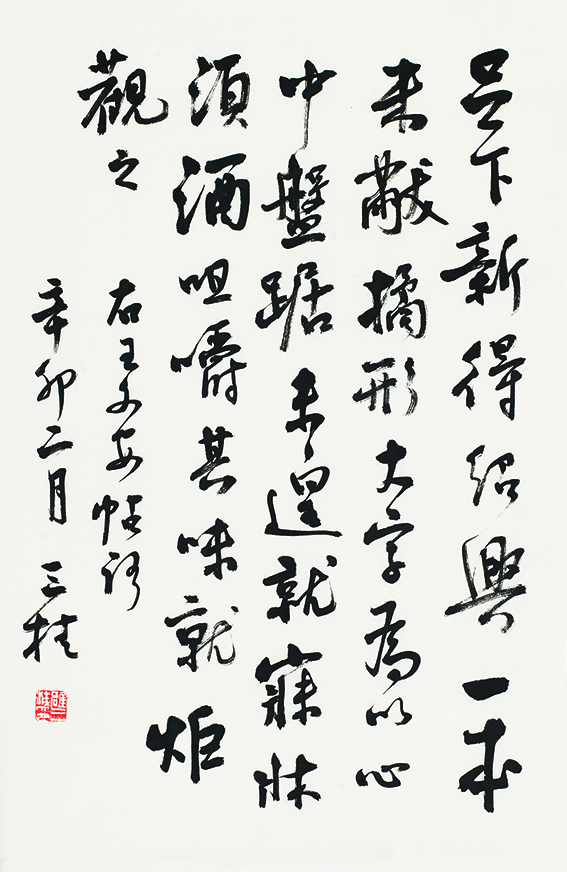 足下新得绍興一本
米黻摛形大字為以心
中盤踞未遑就寐牀
須酒咀嚼其味就炬
觀之
右王文安帖語
辛卯二月 三桂